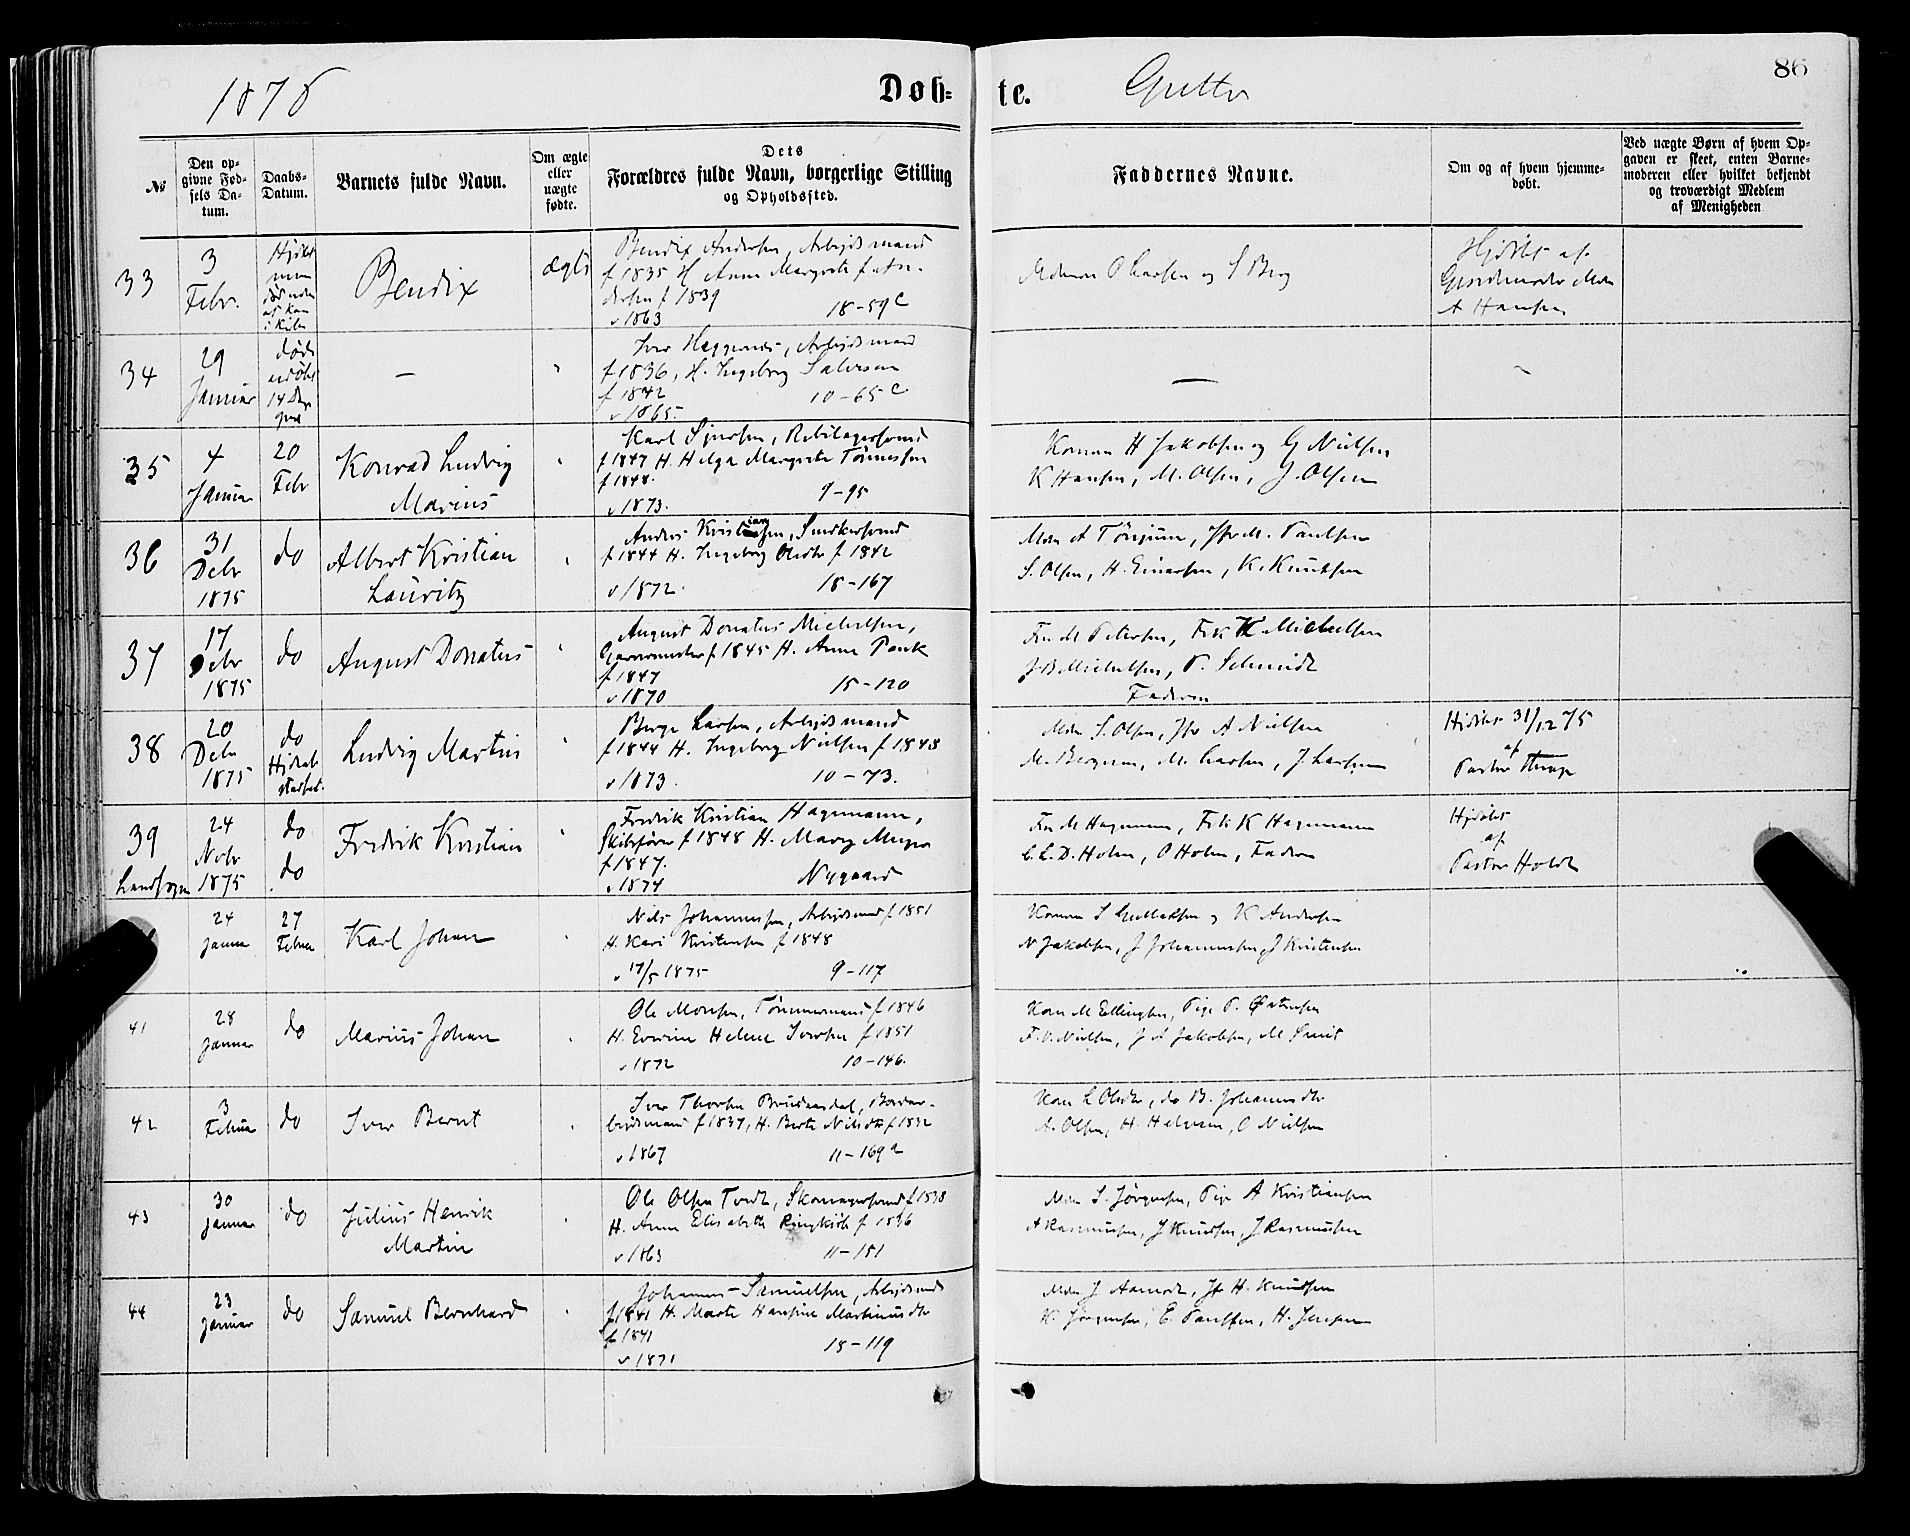 1876
Døb-
te.
Gutter
86
№
Den op-
givne Fød-
sels Da-
tum.
Daabs-
Datum.
Barnets fulde Navn.
Om ægte
eller
uægte
fødte.
Dets
Forældres fulde Navn, borgerlige Stilling
og Opholdssted.
Faddernes Navne.
Om og af hvem hjemme-
døbt.
Ved uægte Børn af hvem Op-
gaven er skeet, enten Barne-
moderen eller hvilket bekjendt
og troværdigt Medlem
af Menigheden
33
3
Febr.
Bendix
ægte
Bendix Andersen, Arbejdsmand
f 1835 H Anne Margrete f. An-
dersen f 1839
v 1863 18-59c
Madam O Larsen og S Berg
Hjdøbt af
Gjordemoder Mdm
A Hansen
34
29
Januar
døde
udøbt
14 Dage
—
"
Iver, Arbejdsmand
f 1836, H. Ingeborg Salvesen
f 1842
v 1865. 10-65c
—
35
4
Januar
20
Febr
Konrad Ludvig
Marius
"
Karl Sjursen, Rebslagersvend
f 1847 H. Helga Margrete Tønnessen
f 1848.
v 1873. 9-95
Konen H Jakobsen og G Nielsen
K Hansen, M. Olsen, J. Olsen
36
31
Debr
1875
do
Albert Kristian
Lauritz
"
Anders Kristiansen, Snedkersvend
f 1844 H. Ingeborg Olsdtr f 1842
v 1872. 18-167
Mdm A, Jfr M. Paulsen
S. Olsen, H. Einarsen, K. Knutsen
37
17
Debr
1875
do
August Donatus
"
August Donatus Michelsen,
Garvermester f 1845 H. Anna Pauk
f 1847
v 1870 15-120
Fru M Petersen, Frk K Michelsen
J B Michelsen, P. Schmidt
Faderen
38
20
Debr
1875
do
Hjdaab
stadfæst.
Ludvig Martin
"
Berge Larsen, Arbejdsmand
f 1844 H. Ingeborg Nielsen f 1848
v 1873. 10-73.
Mdm S. Olsen, Jfr A Nielsen
M. Bergesen, M. Larsen, J. Larsen
Hjdøbt 31/12 75
af
Pastor
39
Landsogn
24
Novbr
1875
do
do
Fredrik Kristian
"
Fredrik Kristian Hagemann,
Skibsfører f 1848 H. Mary Meyer
f 1847.
v 1874 Nygaard
Fru M Hagemann, Frk K Hagemann
C. L. D. Holm, O Holm, Faderen
Hjdøbt
af
Pastor Holdt
24
Januar
27
Februar
Karl Johan
"
Nils Johannessen, Arbejdsmand f 1851
H. Kari Kristensen f 1848
v 17/5 1875 9-117
Konen S Gullaksen og K Andersen
N Jakobsen, J Johannessen, J Kristensen
41
28
Januar
do
Marius Johan
"
Ole Monsen, Tømmermand f 1846
H. Helene Iversen f 1851
v 1872 10-146.
Konen M Ellingsen, Pige P. Østensen
F. O. Nielsen, J A Jakobsen, M Smit
42
3
Februar
do
Iver Bernt
"
Iver Thorsen, Bonde-
arbejdsmand f 1837, H. Berte Nilsdtr f 1832
v 1867 11-169a
Kone L Olsdtr, do B. Johannesdtr
A. Olsen, H. Halvorsen, O Nielsen
43
30
Januar
do
Julius Henrik
Martin
"
Ole Olsen Tvedt, Skomagersvend f 1838
H. Anne Elisabeth Ringkjøb f 1836
v 1863 11-181
Mdm S. Jørgensen, Pige A Kristiansen
A Rasmussen, J Knudsen, J Rasmussen
44
23
Januar
do
Samuel Bernhard
"
Johannes Samuelsen, Arbejdsmand
f 1841 H. Marte Hansine Martinusdtr
f 1841
v 1871 18-119
Mdm J Aamodt, Jfr H. Knudsen
K. Jørgensen, E. Paulsen, H. Jensen